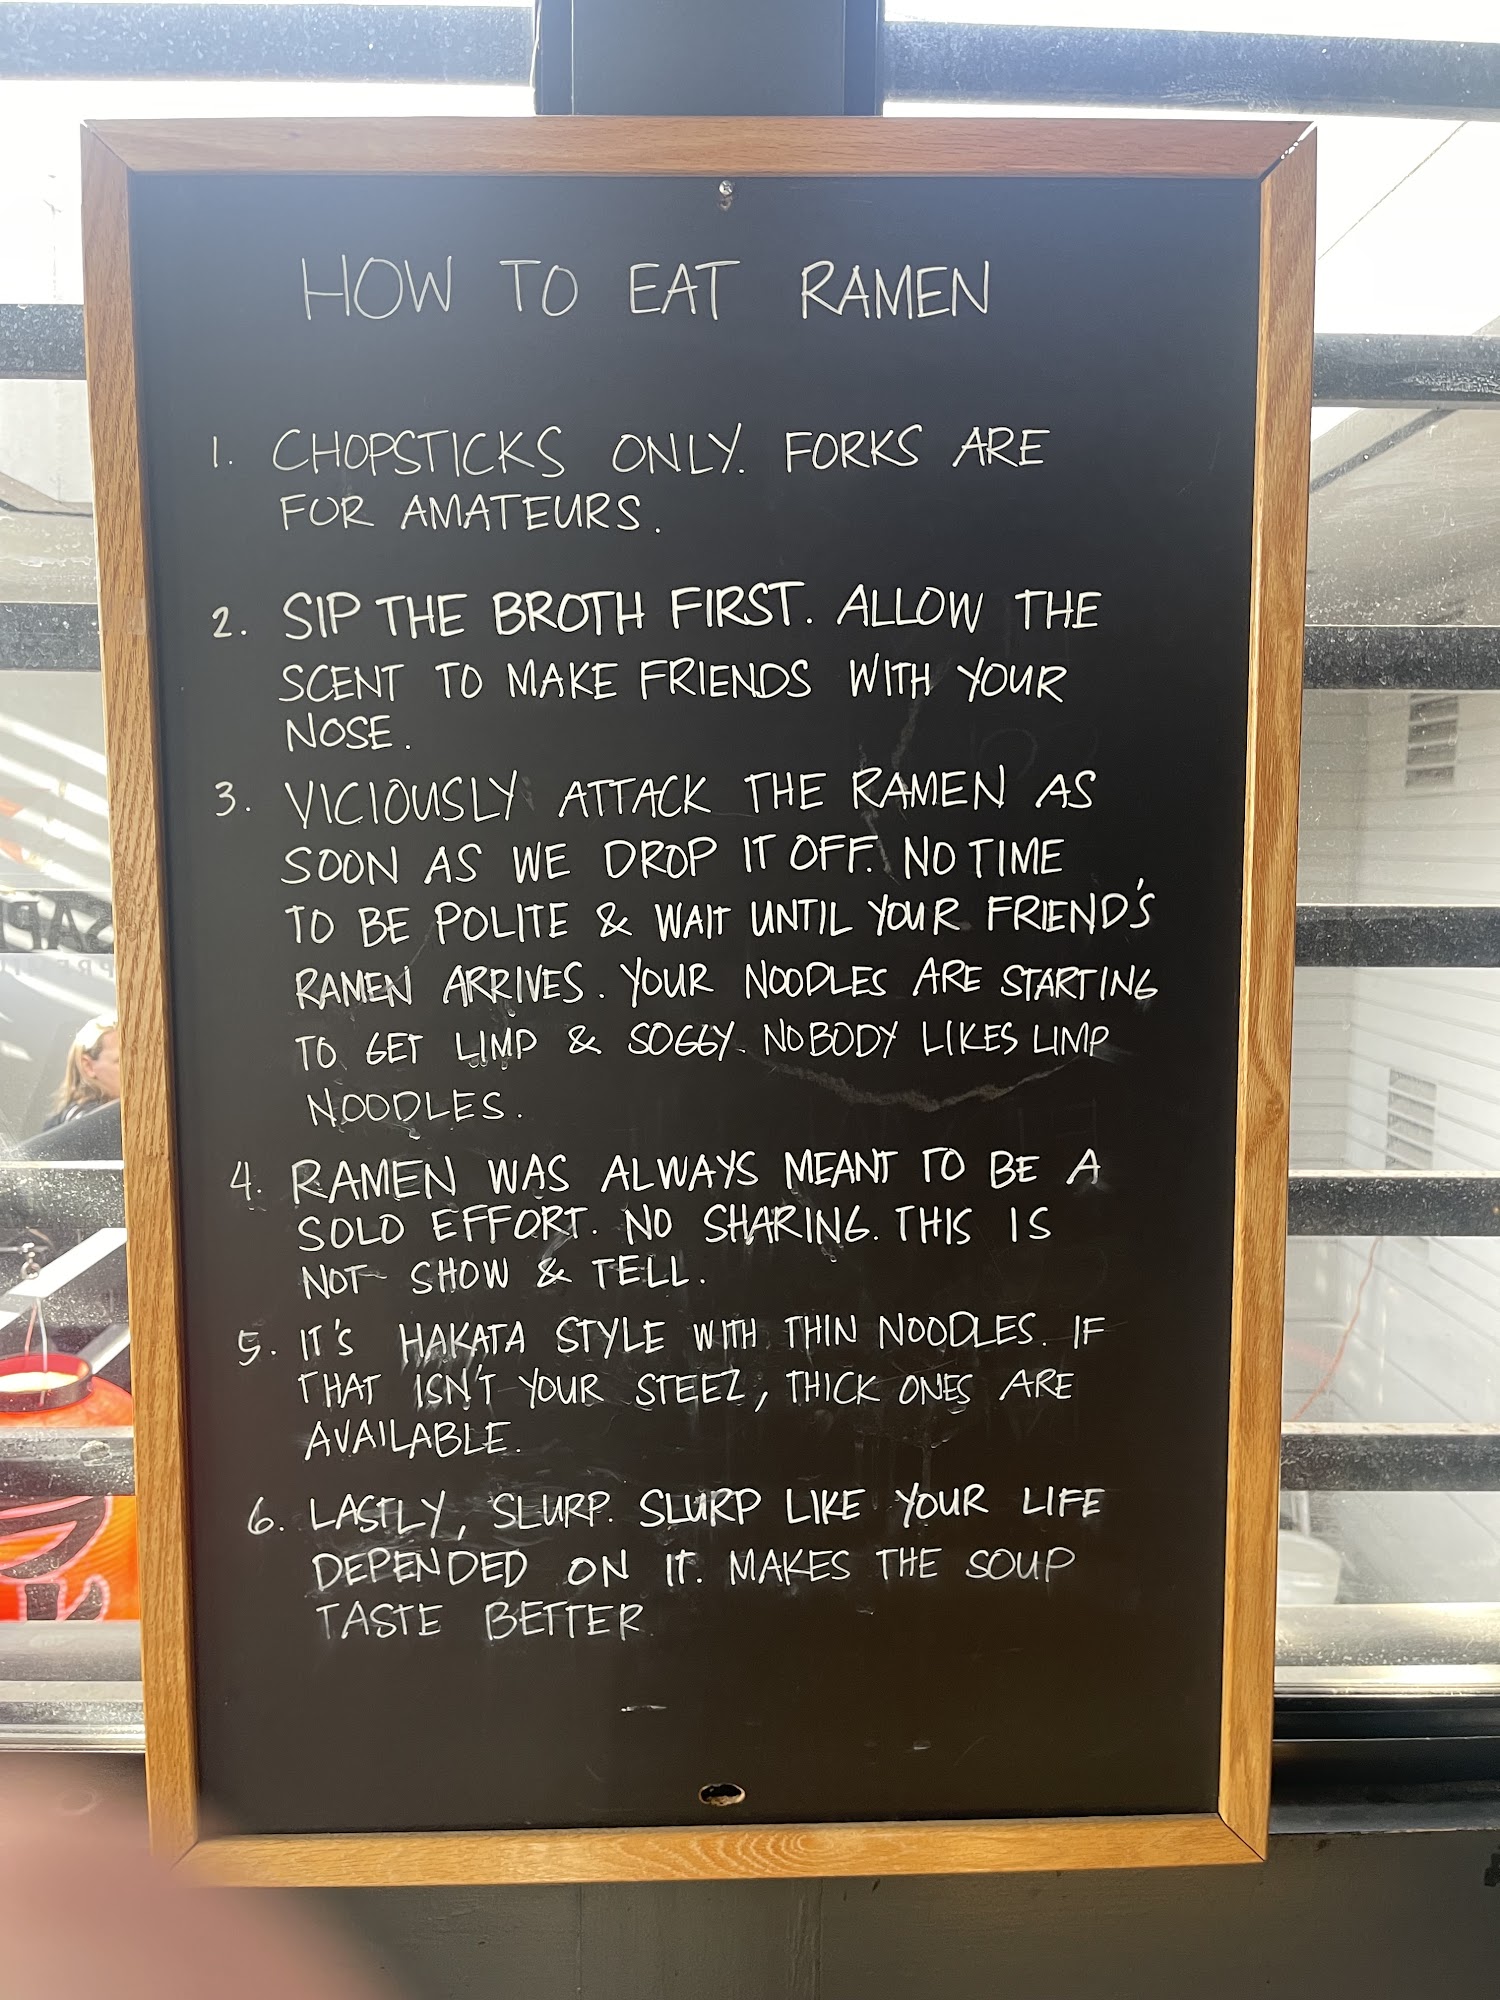 HOW TO EAT RAMEN
1. CHOPSTICKS ONLY. FORKS ARE
FOR AMATEURS.
2. SIP THE BROTH FIRST. ALLOW THE
SCENT TO MAKE FRIENDS WITH YOUR
NOSE.
3. VICIOUSLY ATTACK THE RAMEN AS
SOON AS WE DROP IT OFF. NO TIME
TO BE POLITE & WAIT UNTIL YOUR FRIEND'S
RAMEN ARRIVES. YOUR NOODLES ARE STARTING
TO GET LIMP & SOGGY. NOBODY LIKES LIMP
NOODLES.
4. RAMEN WAS ALWAYS MEANT TO BE A
SOLO EFFORT. NO SHARING. THIS IS
NOT SHOW & TELL.
5. IT'S HAKATA STYLE WITH THIN NOODLES. IF
THAT ISN'T YOUR STEEZ, THICK ONES ARE
AVAILABLE.
6. LASTLY, SLURP. SLURP LIKE YOUR LIFE
DEPENDED ON IT. MAKES THE SOUP
TASTE BETTER.